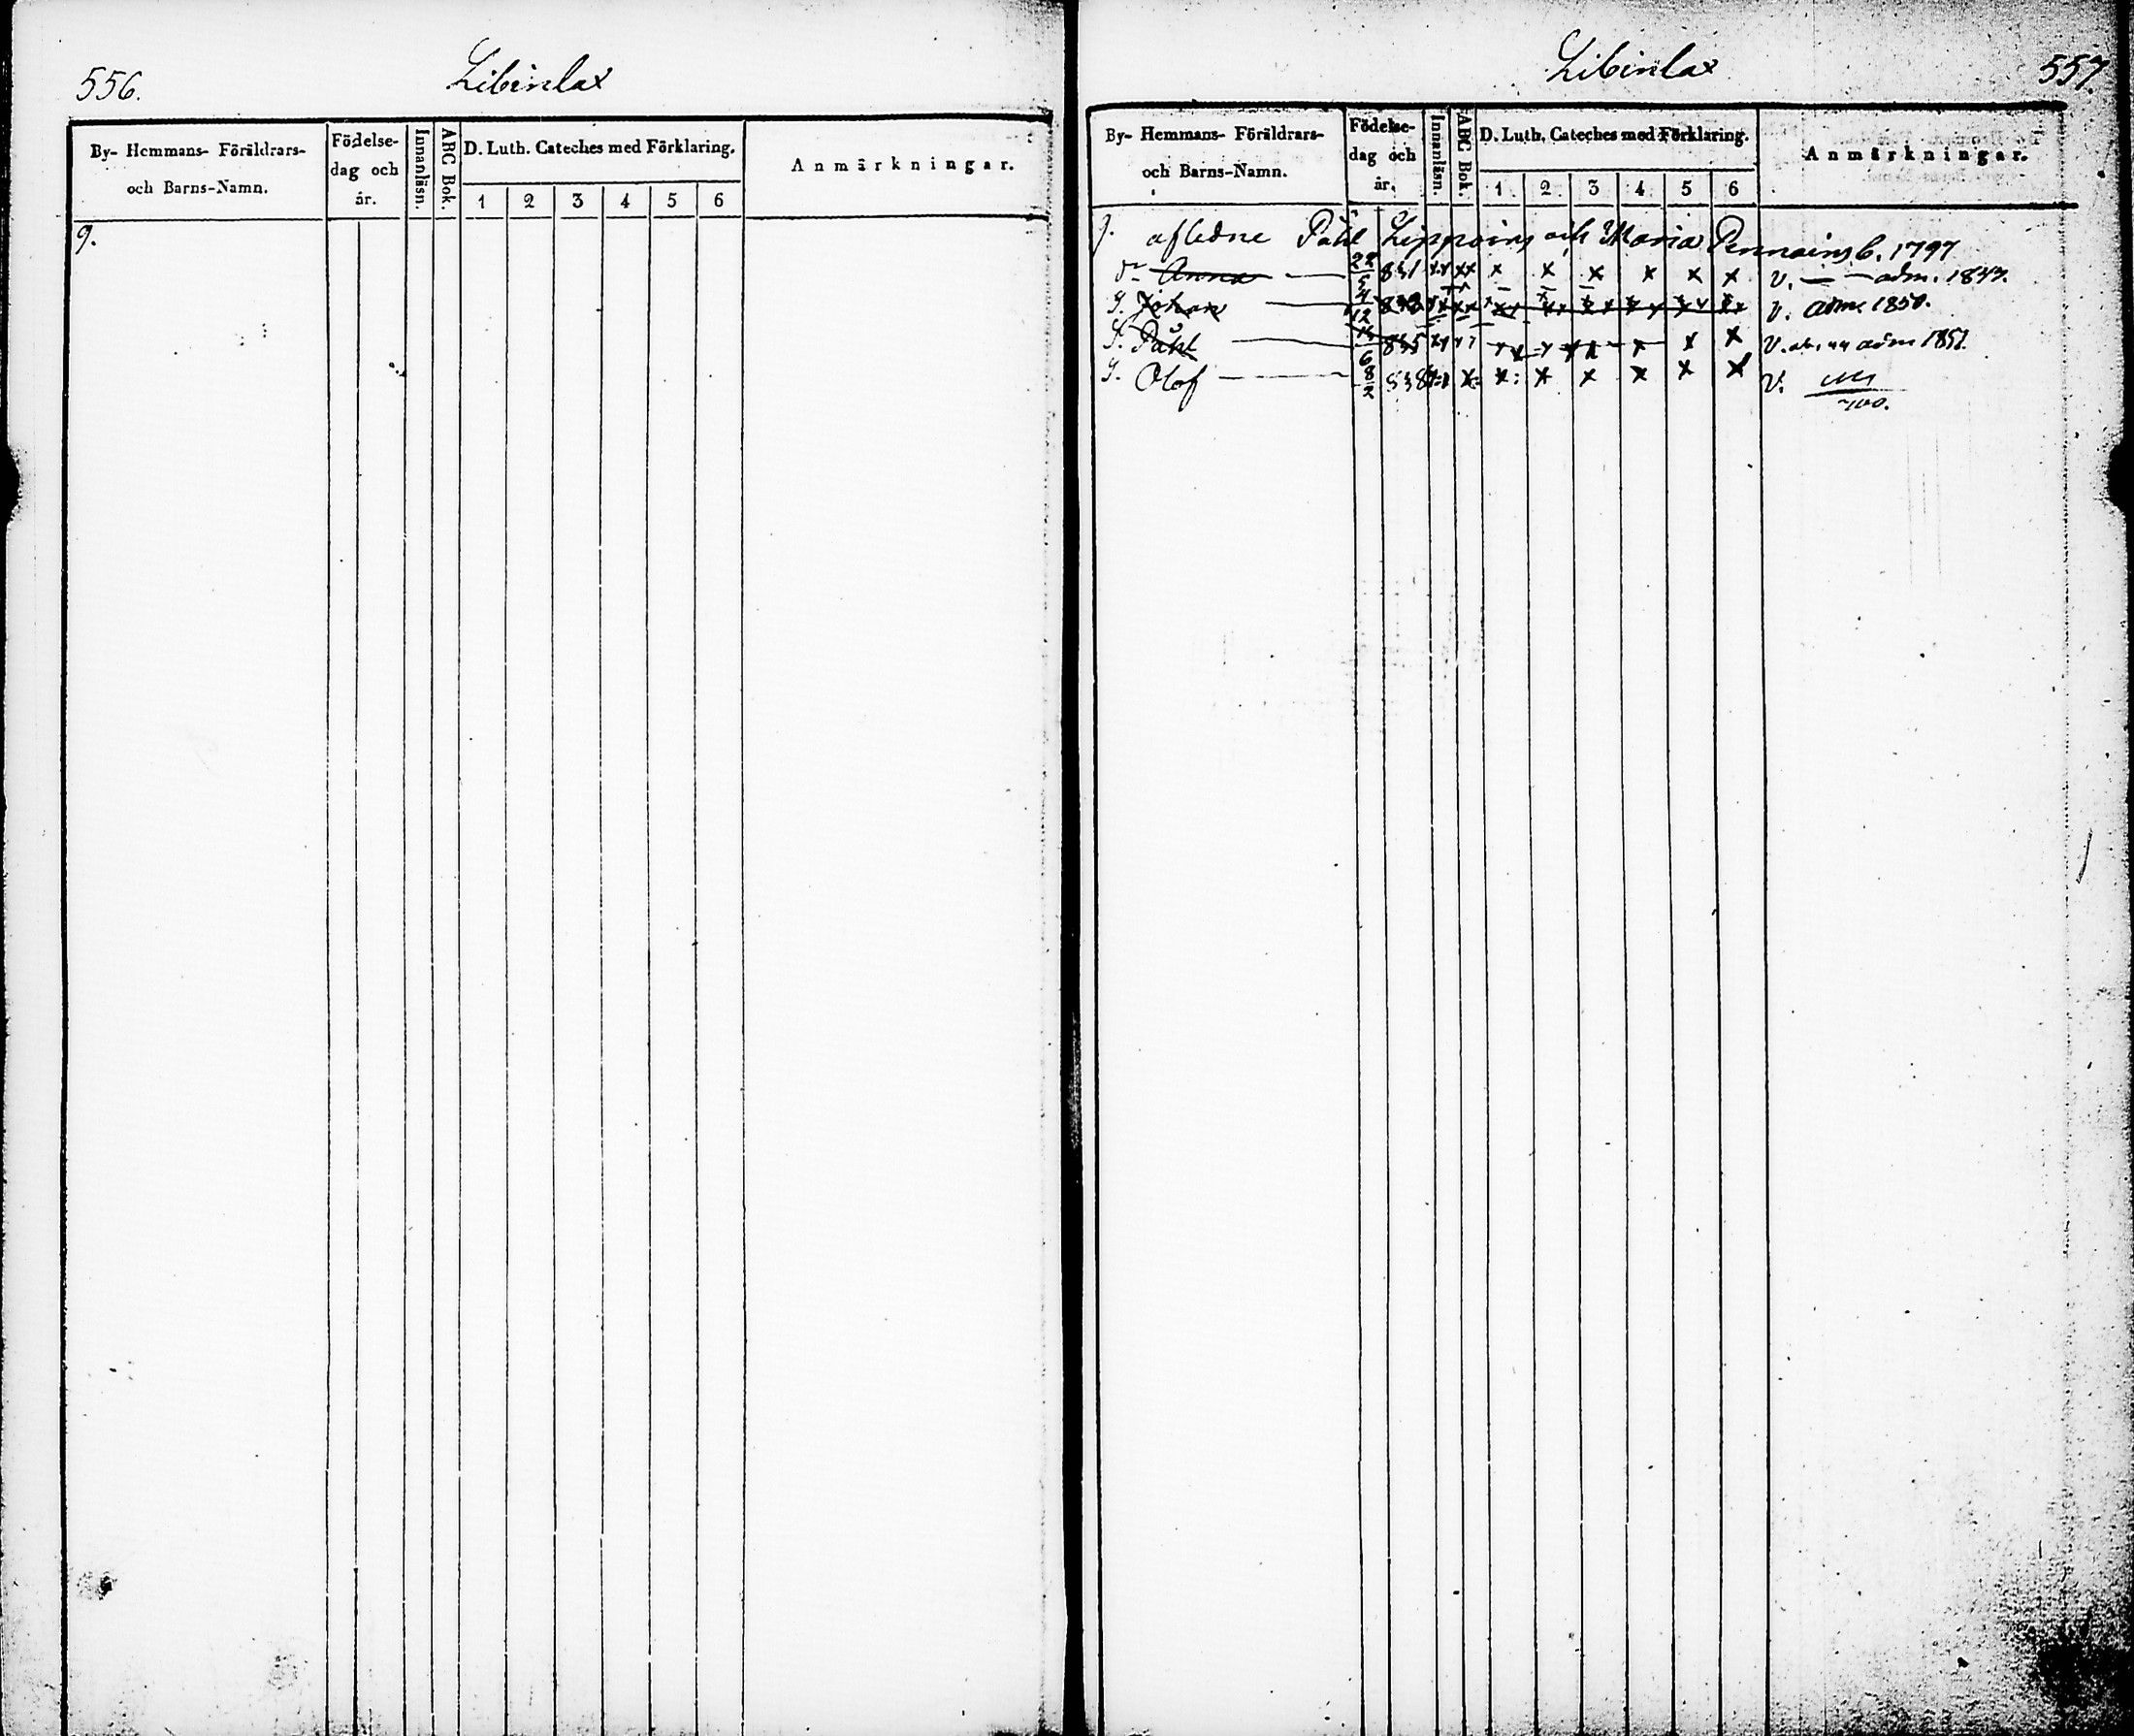 556.
Libinlax
By- Hemmans- Föräldrars-
och Barns-Namn.
Födelse-
dag och
år.
Innanläsn.
ABC Bok.
D. Luth. Cateches med Förklaring.
1 2 3 4 5 6
Anmärkningar.
9.
Libinlax
557.
By- Hemmans- Föräldrars-
och Barns-Namn.
Födelse-
dag och
år.
Innanläsn.
ABC Bok.
D. Luth. Cateches med Förklaring.
1 2 3 4 5 6
Anmärkningar.
afledne Påhl Lippoins och Maria Pennains b. 1797
Dr Anna 22/5 831 xx xx x x x x x x v. — adm. 1847.
S. Johan 4/12 v. adm. 1850.
S. Påhl 835 v. adm 1851
S. Olof 8/2 838 x x x x x x v.